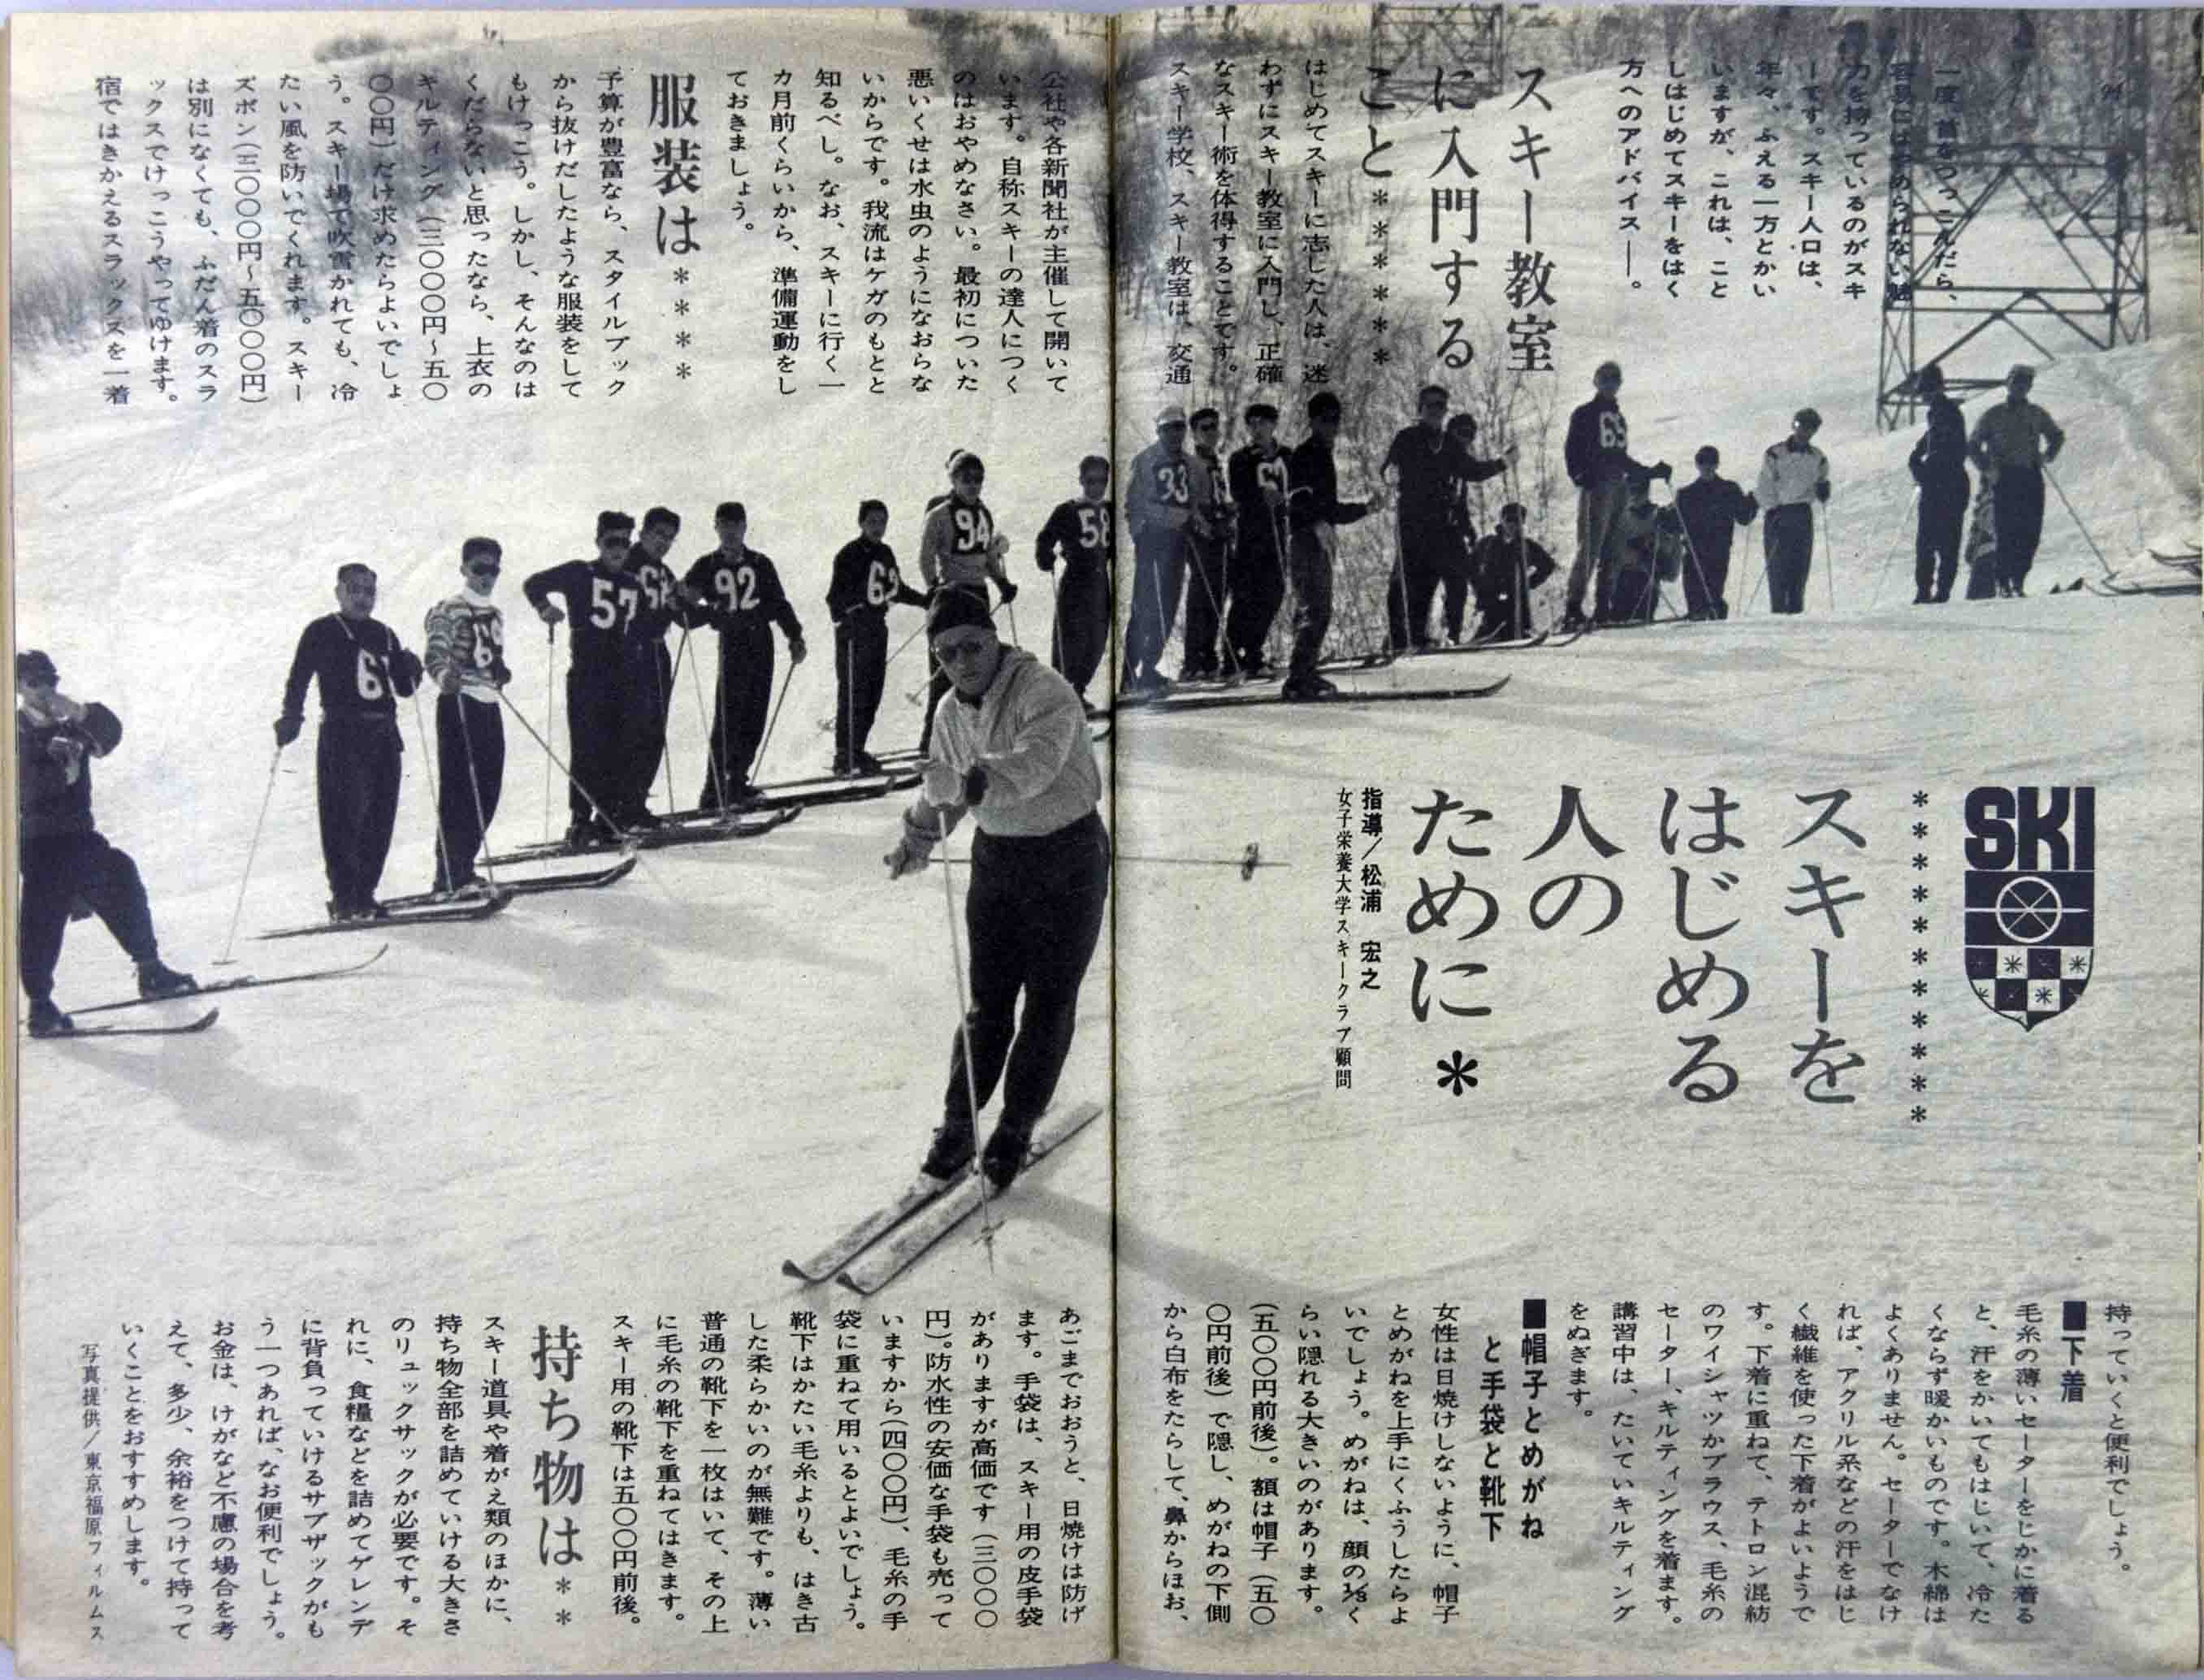 SKI
＊＊＊＊＊＊＊＊＊＊＊
スキーを
はじめる
人の
ために＊
指導／松浦 宏之
女子栄養大学スキークラブ顧問
一度、首をつっこんだら、
容易にはやめられない魅
力を持っているのがスキ
ーです。スキー人口は、
年々、ふえる一方とかい
いますが、これは、こと
しはじめてスキーをはく
方へのアドバイス――。
スキー教室
に入門する
こと＊＊＊＊＊＊
はじめてスキーに志した人は、迷
わずにスキー教室に入門し、正確
なスキー術を体得することです。
スキー学校、スキー教室は、交通
公社や各新聞社が主催して開いて
います。自称スキーの達人につく
のはおやめなさい。最初についた
悪いくせは水虫のようになおらな
いからです。我流はケガのもとと
知るべし。なお、スキーに行く一
カ月前くらいから、準備運動をし
ておきましょう。
服装は＊＊＊＊
予算が豊富なら、スタイルブック
から抜けだしたような服装をして
もけっこう。しかし、そんなのは
くだらないと思ったなら、上衣の
キルティング（三〇〇〇円～五〇
〇〇円）だけ求めたらよいでしょ
う。スキー場で吹雪かれても、冷
たい風を防いでくれます。スキー
ズボン（三〇〇〇円～五〇〇〇円）
は別になくても、ふだん着のスラ
ックスでけっこうやってゆけます。
宿ではきかえるスラックスを一着
持っていくと便利でしょう。
■下着
毛糸の薄いセーターをじかに着る
と、汗をかいてもはじいて、冷た
くならず暖かいものです。木綿は
よくありません。セーターでなけ
れば、アクリル系などの汗をはじ
く繊維を使った下着がよいようで
す。下着に重ねて、テトロン混紡
のワイシャツかブラウス、毛糸の
セーター、キルティングを着ます。
講習中は、たいていキルティング
をぬぎます。
■帽子とめがね
と手袋と靴下
女性は日焼けしないように、帽子
とめがねを上手にくふうしたらよ
いでしょう。めがねは、顔の⅓く
らい隠れる大きいのがあります。
（五〇〇円前後）。額は帽子（五〇
〇円前後）で隠し、めがねの下側
から白布をたらして、鼻からほお、
あごまでおおうと、日焼けは防げ
ます。手袋は、スキー用の皮手袋
がありますが高価です（三〇〇〇
円）。防水性の安価な手袋も売って
いますから（四〇〇円）、毛糸の手
袋に重ねて用いるとよいでしょう。
靴下はかたい毛糸よりも、はき古
した柔らかいのが無難です。薄い
普通の靴下を一枚はいて、その上
に毛糸の靴下を重ねてはきます。
スキー用の靴下は五〇〇円前後。
持ち物は＊＊
スキー道具や着がえ類のほかに、
持ち物全部を詰めていける大きさ
のリュックサックが必要です。そ
れに、食糧などを詰めてゲレンデ
に背負っていけるサブザックがも
う一つあれば、なお便利でしょう。
お金は、けがなど不慮の場合を考
えて、多少、余裕をつけて持って
いくことをおすすめします。
写真提供／東京福原フィルムス
57
92
94
58
33
69